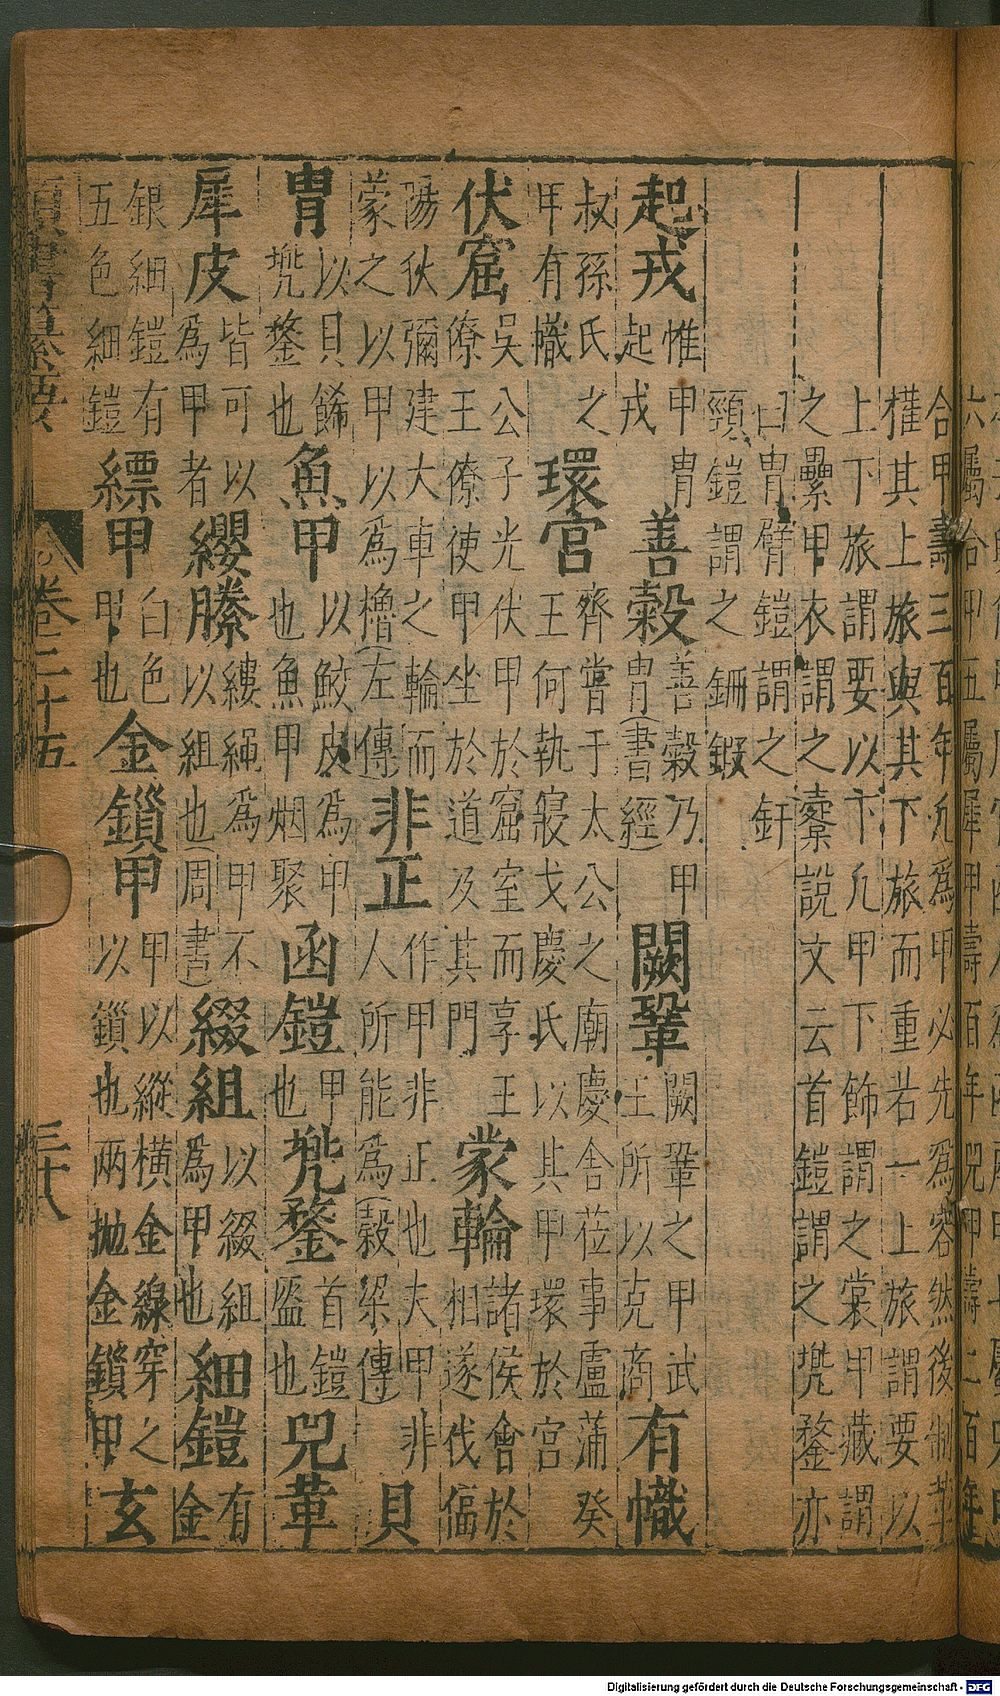 合甲壽三百年凡爲甲必先爲容然後制革
權其上旅與其下旅而重若一上旅謂要以
上下旅謂要以下凡甲下飾謂之裳甲藏謂
之櫜甲衣謂之櫜說文云首鎧謂之兠鍪亦
曰冑臂鎧謂之釬
頸鎧謂之錏鍜
起戎惟甲冑起戎善穀善穀乃甲冑(書經)闕鞏闕鞏之甲武王所以克商有幟
叔孫氏之甲有幟環宮齊嘗于太公之廟慶舍莅事盧蒲癸王何執寢戈慶氏以其甲環於宮
伏窟吳公子光伏甲於窟室而享王僚王僚使甲坐於道及其門蒙輪諸侯會於柤遂伐偪
陽狄彌建大車之輪而蒙之以甲以爲櫓(左傳)非正作甲非正也夫甲非人所能爲(穀梁傳)貝
冑以貝餙兠鍪也魚甲以鮫皮爲甲也魚甲烟聚函鎧甲也兠鍪首鎧盔也兕革
犀皮皆可以爲甲者纓縢縷繩爲甲不以組也(周書)綴組以綴組爲甲也細鎧有金
銀細鎧有五色細鎧縹甲白色甲也金鎖甲甲以縱橫金線穿之以鎖也兩拋金鎖甲玄
卷二十五
三十八
Digitalisierung gefördert durch die Deutsche Forschungsgemeinschaft - DFG